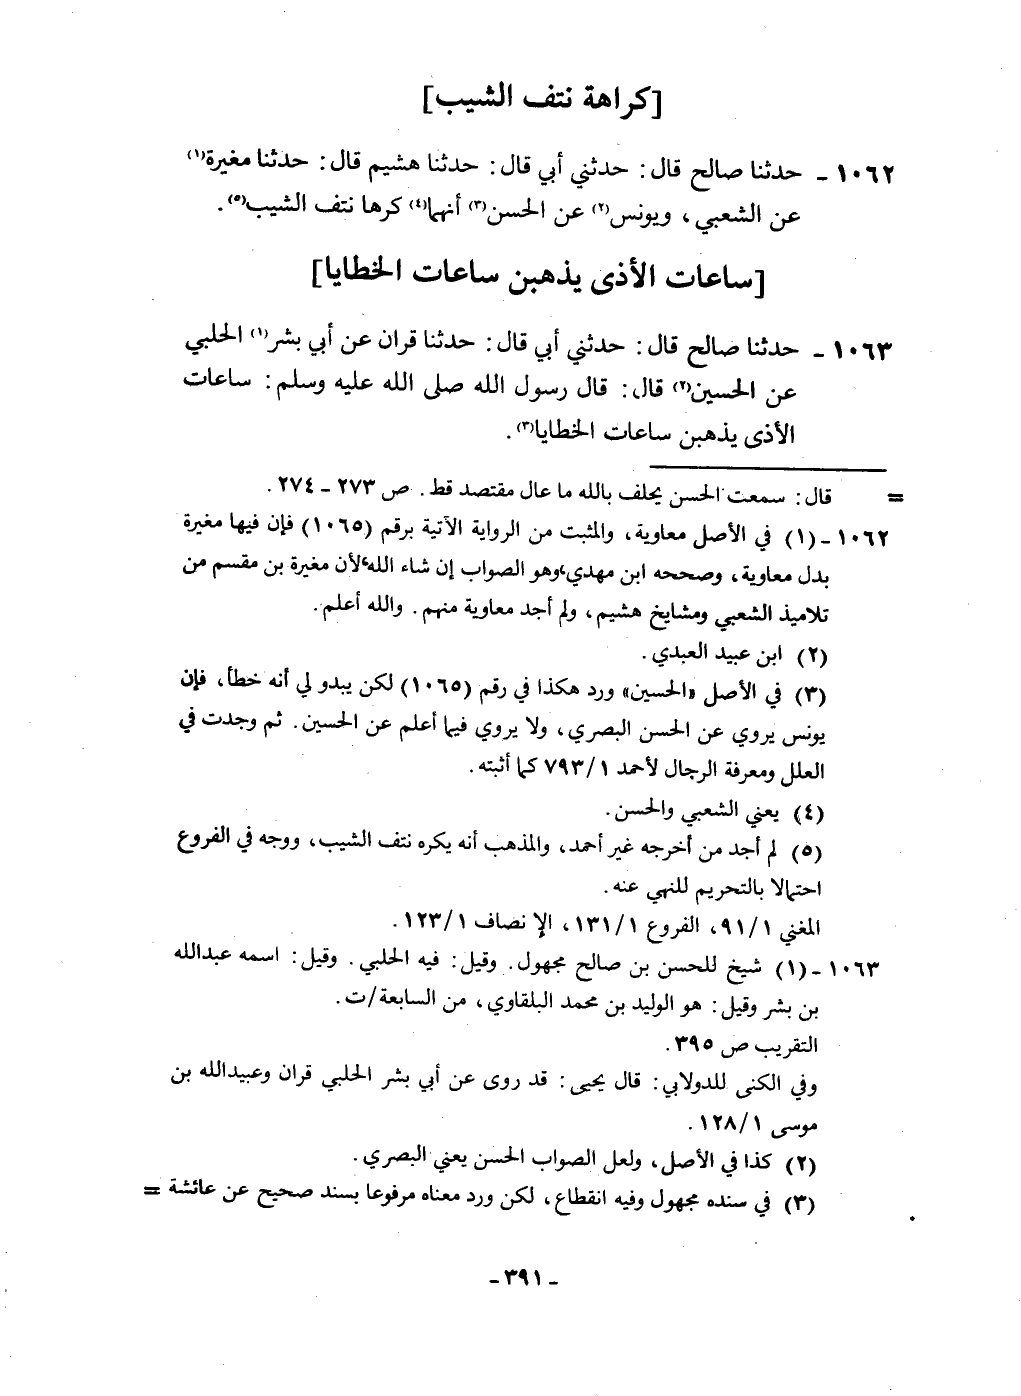 [كراهة نتف الشيب]
١٠٦٢ ـ حدثنا صالح قال: حدثني أبي قال: حدثنا هشيم قال: حدثنا مغيرة(١)
عن الشعبي، ويونس(٢) عن الحسن(٣) أنهما(٤) كرها نتف الشيب(٥).
[ساعات الأذى يذهبن ساعات الخطايا]
١٠٦٣ ـ حدثنا صالح قال: حدثني أبي قال: حدثنا قران عن أبي بشر(١) الحلبي
عن الحسين(٢) قال: قال رسول الله صلى الله عليه وسلم: ساعات
الأذى يذهبن ساعات الخطايا(٣).
= قال: سمعت الحسن يحلف بالله ما عال مقتصد قط. ص ٢٧٣ ـ ٢٧٤.
١٠٦٢ ـ (١) في الأصل معاوية، والمثبت من الرواية الآتية برقم (١٠٦٥) فإن فيها مغيرة
بدل معاوية، وصححه ابن مهدي،وهو الصواب إن شاء الله،لأن مغيرة بن مقسم من
تلاميذ الشعبي ومشايخ هشيم، ولم أجد معاوية منهم. والله أعلم.
(٢) ابن عبيد العبدي.
(٣) في الأصل «الحسين» ورد هكذا في رقم (١٠٦٥) لكن يبدو لي أنه خطأ، فإن
يونس يروي عن الحسن البصري، ولا يروي فيما أعلم عن الحسين. ثم وجدت في
العلل ومعرفة الرجال لأحمد ١/٧٩٣ كما أثبته.
(٤) يعني الشعبي والحسن.
(٥) لم أجد من أخرجه غير أحمد، والمذهب أنه يكره نتف الشيب، ووجه في الفروع
احتمالا بالتحريم للنهي عنه.
المغني ١/٩١، الفروع ١/١٣١، الإنصاف ١/١٢٣.
١٠٦٣ ـ (١) شيخ للحسن بن صالح مجهول. وقيل: فيه الحلبي. وقيل: اسمه عبدالله
بن بشر وقيل: هو الوليد بن محمد البلقاوي، من السابعة/ت.
التقريب ص ٣٩٥.
وفي الكنى للدولابي: قال يحيى: قد روى عن أبي بشر الحلبي قران وعبيدالله بن
موسى ١/١٢٨.
(٢) كذا في الأصل، ولعل الصواب الحسن يعني البصري.
(٣) في سنده مجهول وفيه انقطاع، لكن ورد معناه مرفوعا بسند صحيح عن عائشة =
ـ ٣٩١ ـ